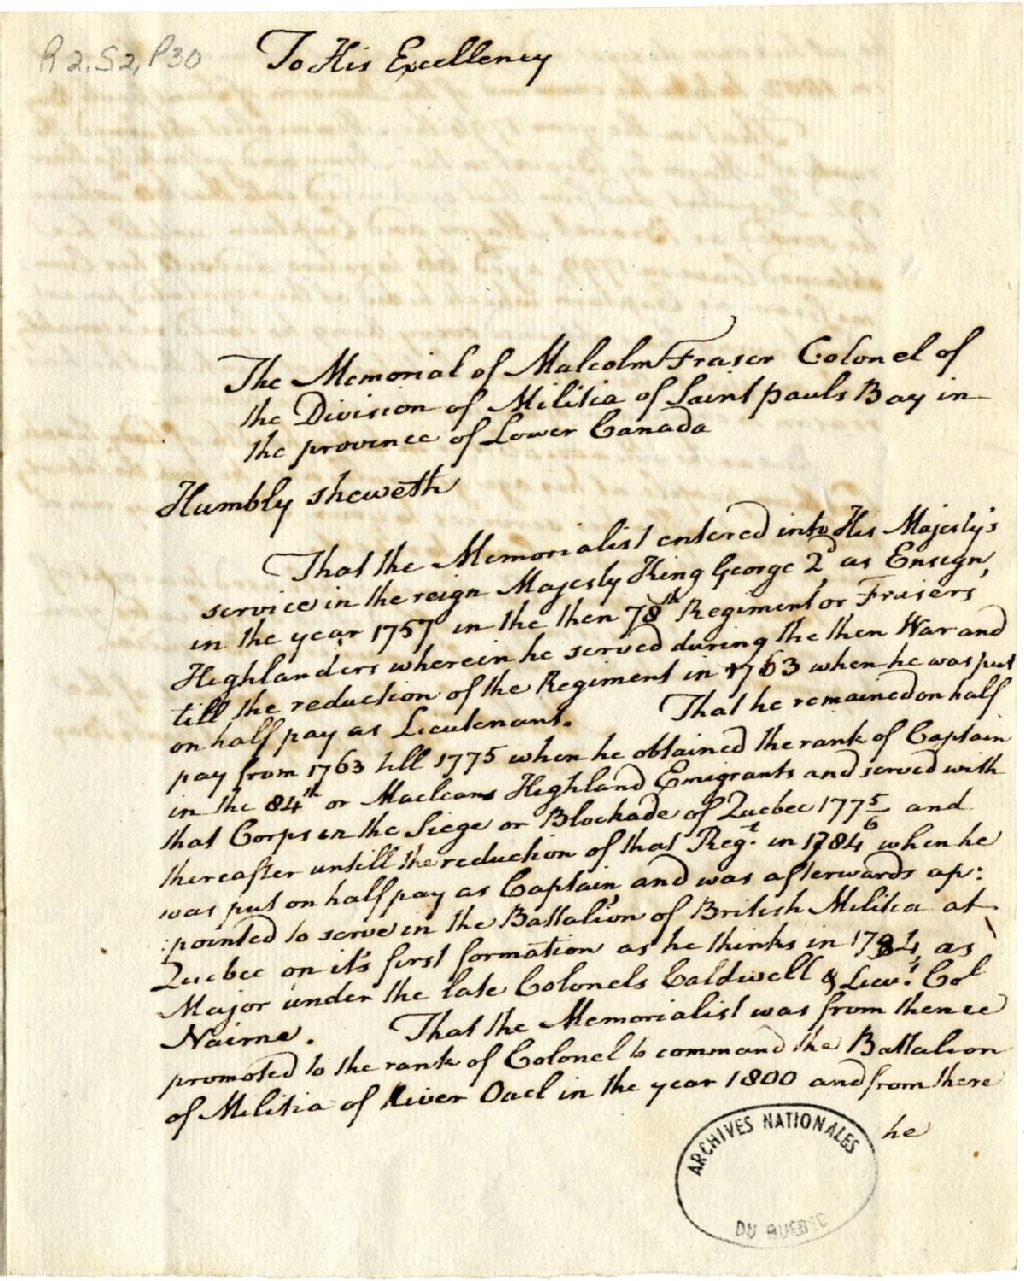 R2, S2, P30
To His Excellency
The Memorial of Malcolm Fraser Colonel of
the Division of Militia of Saint pauls Bay in
the province of Lower Canada
Humbly sheweth
That the Memorialist entered into His Majesty's
service in the reign Majesty King George 2d as Ensign,
in the year 1757 in the then 78th Regiment or Frasers
Highlanders wherein he served during the then War and
till the reduction of the Regiment in 1763 when he was put
on half pay as Lieutenant. That he remained on half
pay from 1763 till 1775 when he obtained the rank of Captain
in the 84th or Macleans Highland Emigrants and served with
that Corps in the Siege or Blockade of Quebec 1775/6 and
thereafter untill the reduction of that Regt. in 1784 when he
was put on half pay as Captain, and was afterwards ap:
:pointed to serve in the Battalion of British Militia at
Quebec on it's first formation as he thinks in 1784 as
Major under the late Colonels Caldwell & Lieut. Col
Nairne. That the Memorialist was from thence
promoted to the rank of Colonel to command the Battalion
of Militia of River Oael in the year 1800 and from there
he
ARCHIVES NATIONALES
DU QUÉBEC